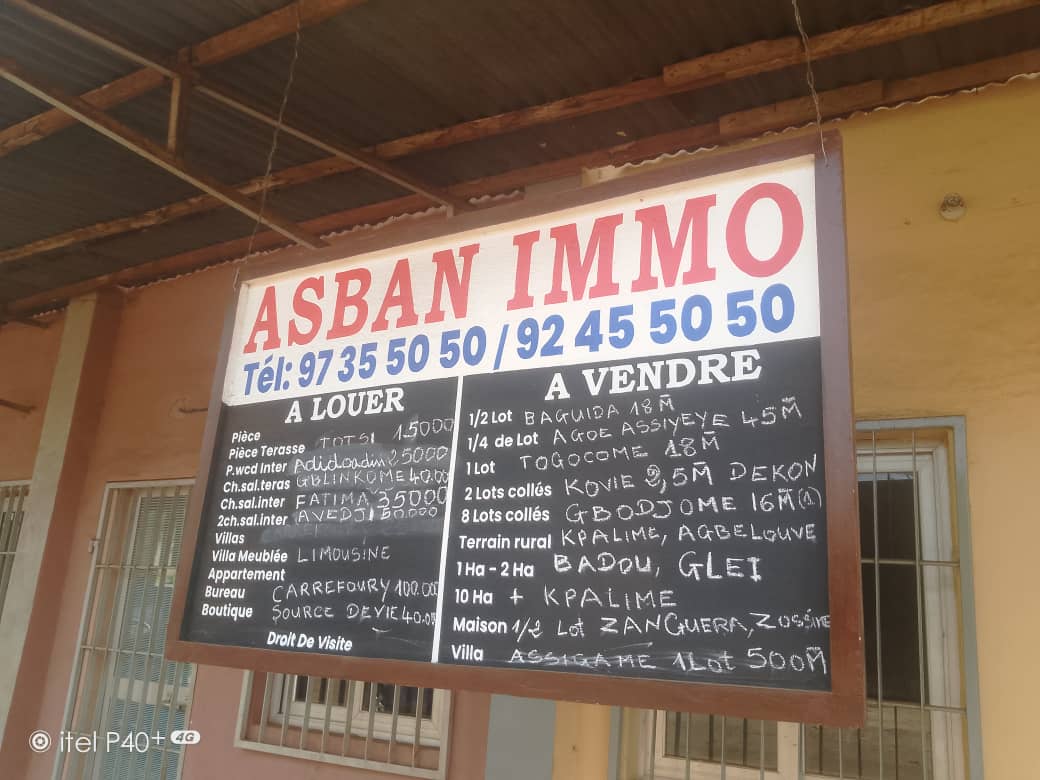 ASBAN IMMO
Tél: 97 35 50 50 / 92 45 50 50
A LOUER
Pièce
Pièce Terasse TOTSI 15000
P.wcd Inter Adidoadin 25000
Ch.sal.teras GBLINKOME 40.000
Ch.sal.inter FATIMA 35000
2ch.sal.inter AVEDJI 50.000
Villas
Villa Meublée LIMOUSINE
Appartement
Bureau CARREFOURY 100.000
Boutique SOURCE DEVIE 40.000
Droit De Visite
A VENDRE
1/2 Lot BAGUIDA 18M
1/4 de Lot AGOE ASSIYEYE 45M
1 Lot TOGOCOME 18M
2 Lots collés KOVIE 2,5M DEKON
8 Lots collés GBODJOME 16M (1)
Terrain rural KPALIME, AGBELOUVE
1 Ha - 2 Ha BADOU, GLEI
10 Ha + KPALIME
Maison 1/2 Lot ZANGUERA, ZOSSIME
Villa ASSIGAME 1Lot 500M
itel P40+ 4G